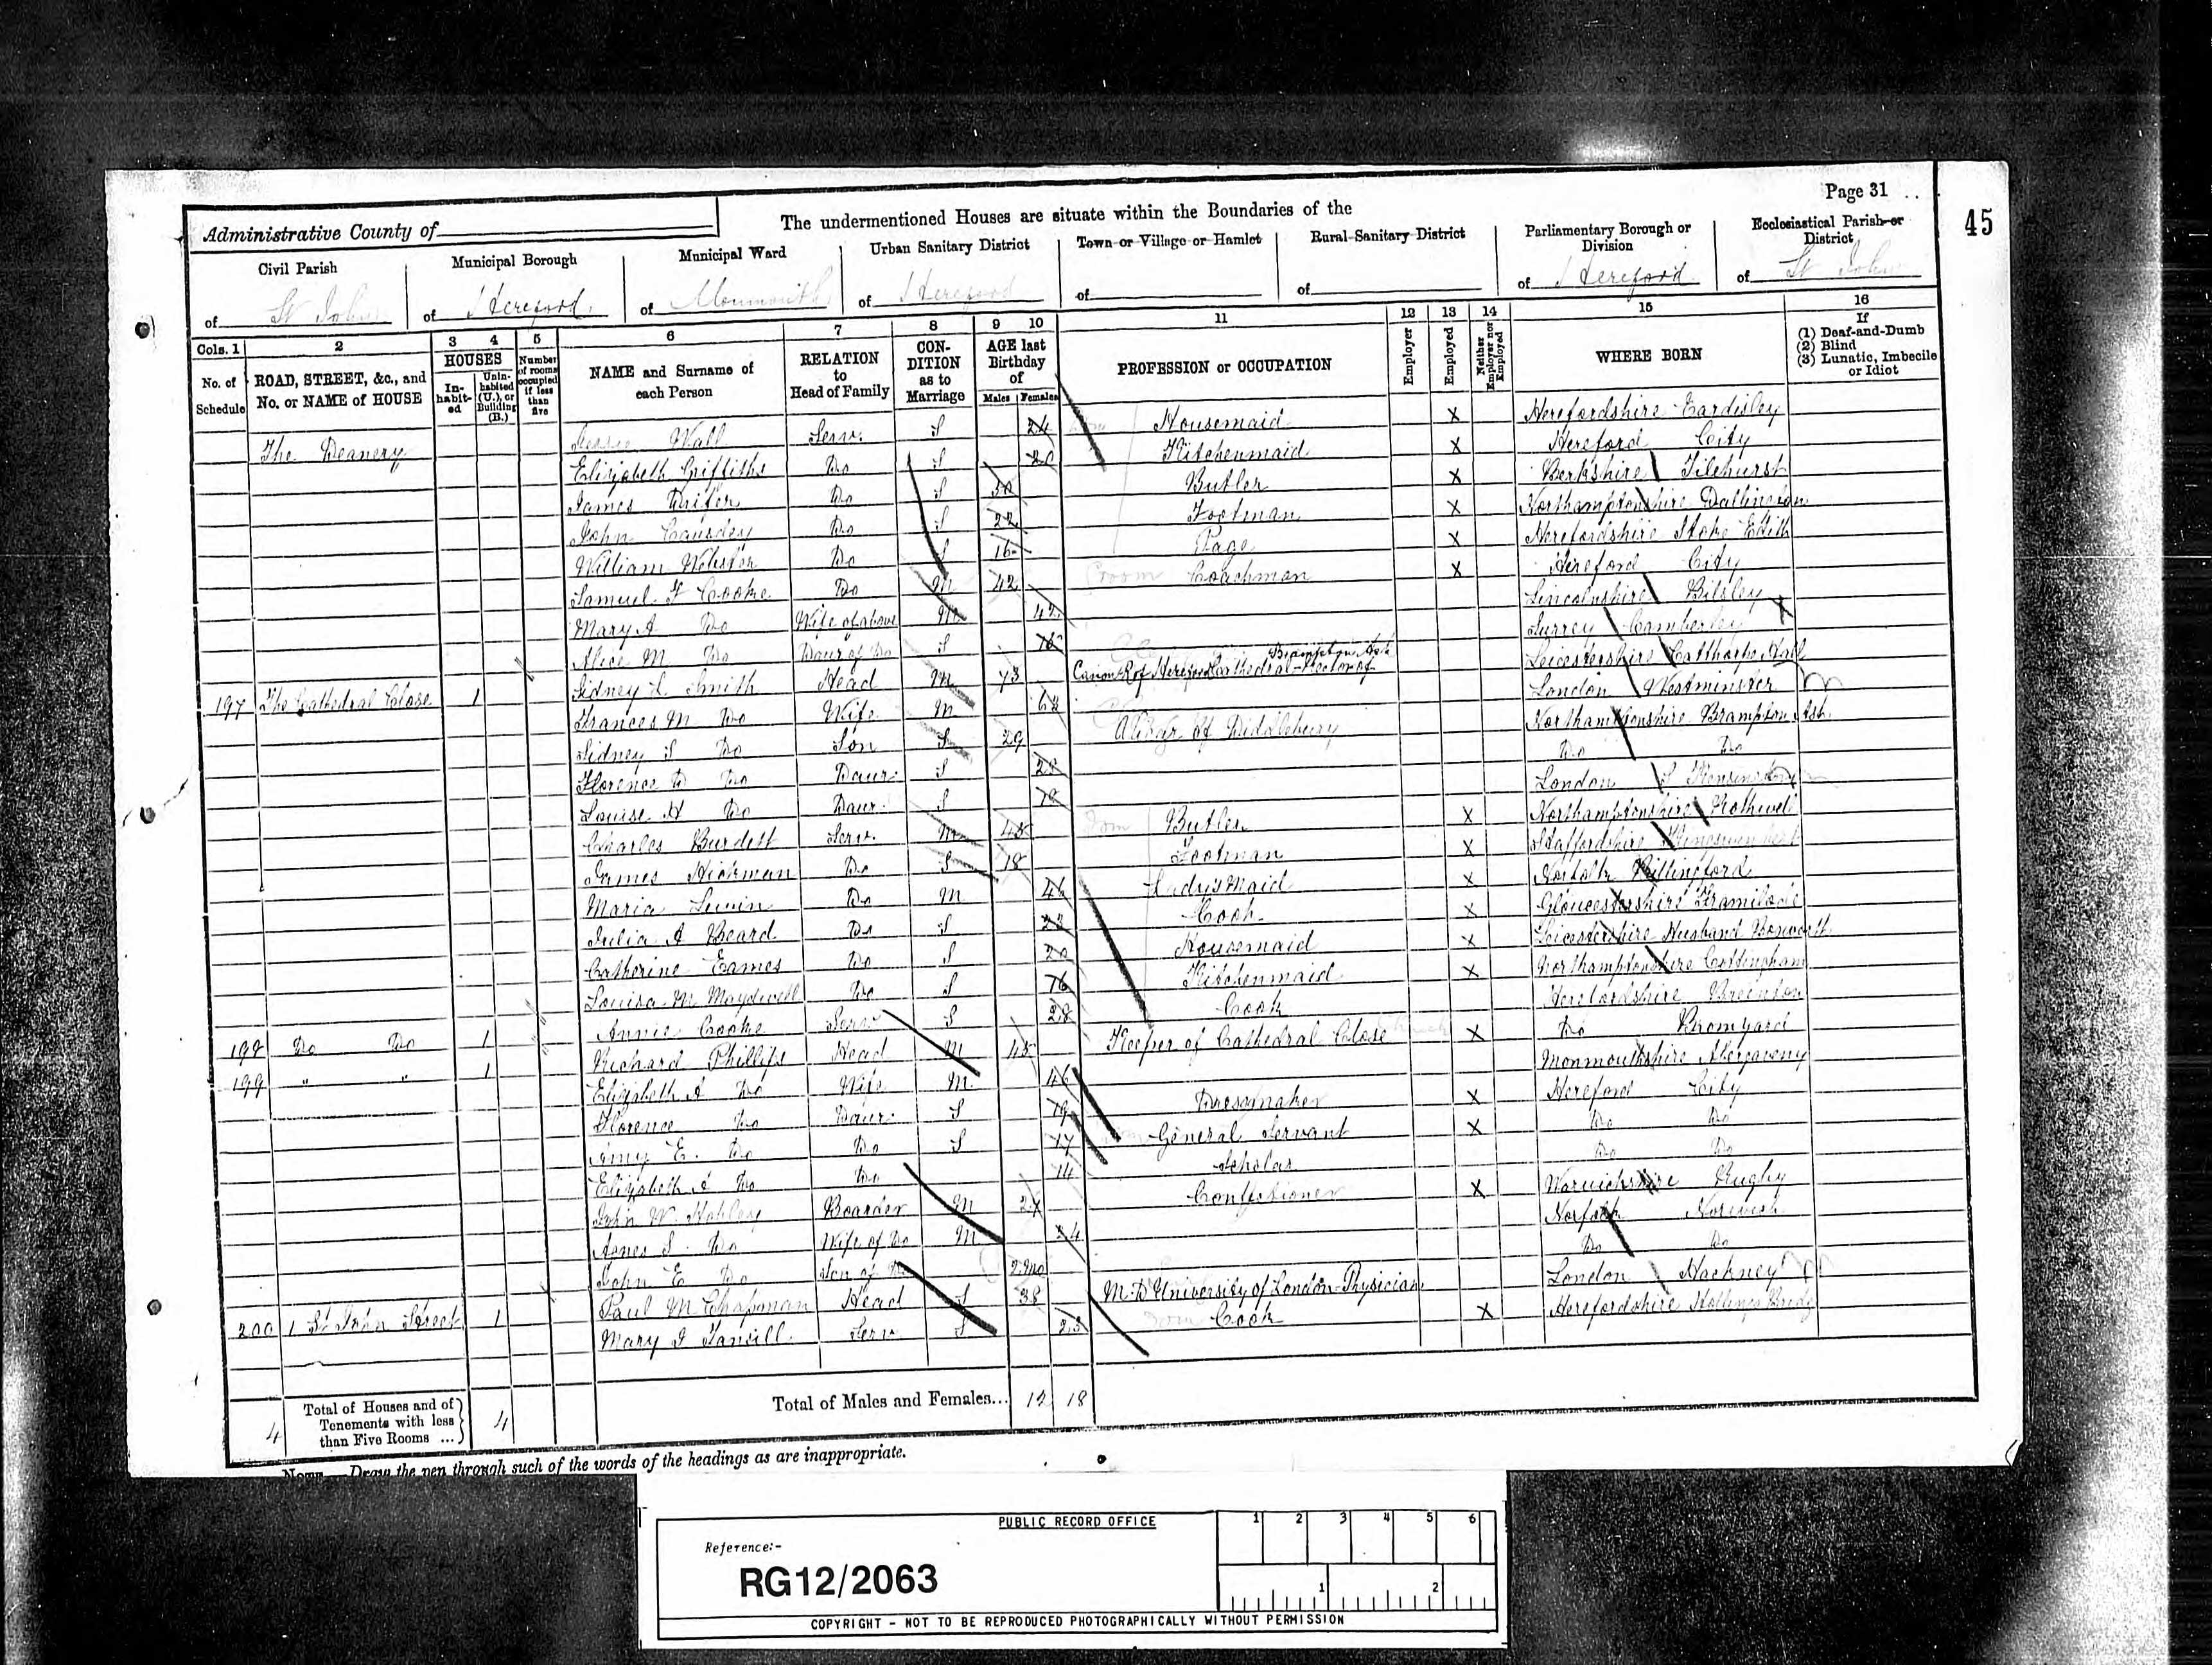 Page 31
45
Administrative County of
The undermentioned Houses are situate within the Boundaries of the
Civil Parish of St John
Municipal Borough of Hereford
Municipal Ward of Monmouth
Urban Sanitary District of Hereford
Town or Village or Hamlet of
Rural Sanitary District of
Parliamentary Borough or Division of Hereford
Ecclesiastical Parish or District of St John
Cols. 1 2 3 4 5 6 7 8 9 10 11 12 13 14 15 16
No. of Schedule
ROAD, STREET, &c., and No. or NAME of HOUSE
HOUSES
In-habit-ed
Unin-habited (U.), or Building (B.)
Number of rooms occupied if less than five
NAME and Surname of each Person
RELATION to Head of Family
CON-DITION as to Marriage
AGE last Birthday of
Males Females
PROFESSION or OCCUPATION
Employer
Employed
Neither Employer nor Employed
WHERE BORN
If
(1) Deaf-and-Dumb
(2) Blind
(3) Lunatic, Imbecile or Idiot
The Deanery Wall Serv. S 24 Housemaid X Herefordshire Eardisley
Elizabeth Griffiths Do S 20 Kitchenmaid X Hereford City
James Do S 30 Butler X Berkshire Tilehurst
John Do S 22 Footman X Northamptonshire Dallington
William Webster Do S 16 Page X Herefordshire Stoke Edith
Samuel F Cooke Do M 42 Groom Coachman X Hereford City
Mary A Do Wife of above M 42 Lincolnshire
Alice M Do Daur of Do S Surrey Camberley
197 The Cathedral Close 1 Sidney L Smith Head M 73 Canon R of Hereford Cathedral - Rector of Brampton Ash Leicestershire Catthorpe Hall
Frances M Do Wife M London Westminster
Sidney S Do Son S 29 Vicar of Diddlebury Northamptonshire Brampton Ash
Florence Do Daur. S Do Do
Louise A Do Daur. S London S Kensington
Charles Burdett Serv. M 45 Dom Butler X Northamptonshire Rothwell
James Hickman Do S 18 Footman X Staffordshire
Maria Do M 46 Lady's Maid X Norfolk Billingford
Julia A Beard Do S 22 Cook X Gloucestershire Framilode
Catherine Eames Do S 20 Housemaid X Leicestershire Husband Bosworth
Louisa M Maydwell Do S 16 Kitchenmaid X Northamptonshire Cottingham
198 Do Do 1 Annie Cooke Serv S 28 Cook Herefordshire Breinton
199 " " 1 Richard Phillips Head M 45 Keeper of Cathedral Close X Do Bromyard
Elizabeth A Do Wife M 46 Monmouthshire Abergaveny
Florence Do Daur. S 19 Dressmaker X Hereford City
Amy E. Do Do S 17 General Servant X Do Do
Elizabeth A Do Do 14 Scholar Do Do
John W. Boarder M Confectioner X Warwickshire Rugby
Agnes S. Do Wife of Do M 24 Norfolk Norwich
John E Do Son of Do 2 Mo Do Do
200 1 St John Street 1 Paul M Chapman Head S 38 M.D University of London - Physician London Hackney
Mary J Serv S 23 Dom Cook X Herefordshire
4 Total of Houses and of Tenements with less than Five Rooms ... 4
Total of Males and Females... 12 18
Draw the pen through such of the words of the headings as are inappropriate.
PUBLIC RECORD OFFICE
Reference:-
RG12/2063
1 2 3 4 5 6
1 2
COPYRIGHT - NOT TO BE REPRODUCED PHOTOGRAPHICALLY WITHOUT PERMISSION